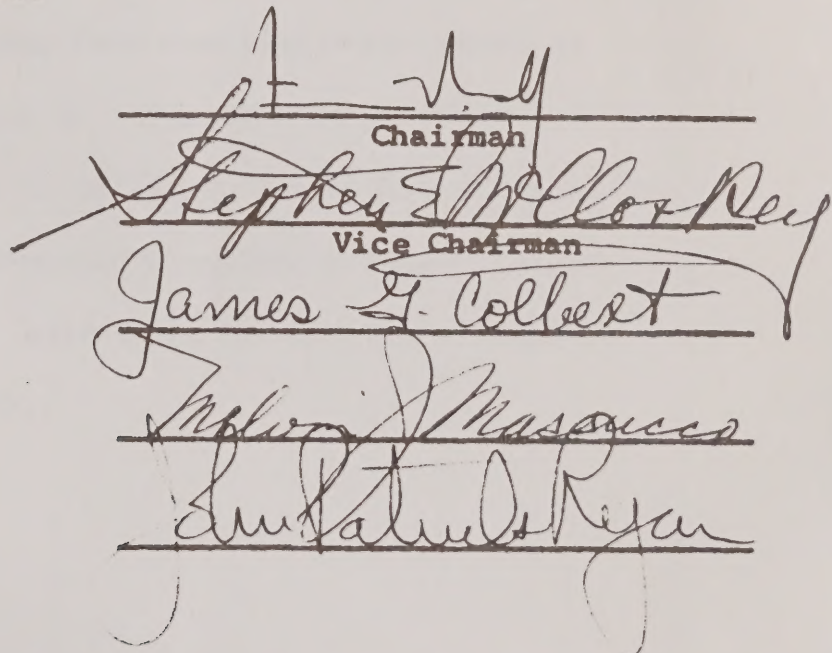 Chairman
Stephen E. McCloskey
Vice Chairman
James G. Colbert
Melvin J. Massucco
Patrick Ryan